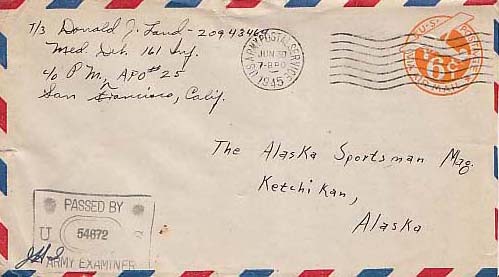 T/3 Donald J. Land - 20943469
Med. Det. 161 Inf.
c/o P.M., APO #25
San Francisco, Calif.
U.S. ARMY POSTAL SERVICE
JUN 30
7-8 PM
1945
U.S. POSTAGE
6¢
VIA AIR MAIL
The Alaska Sportsman Mag.
Ketchikan,
Alaska
PASSED BY
U 54672 S
ARMY EXAMINER